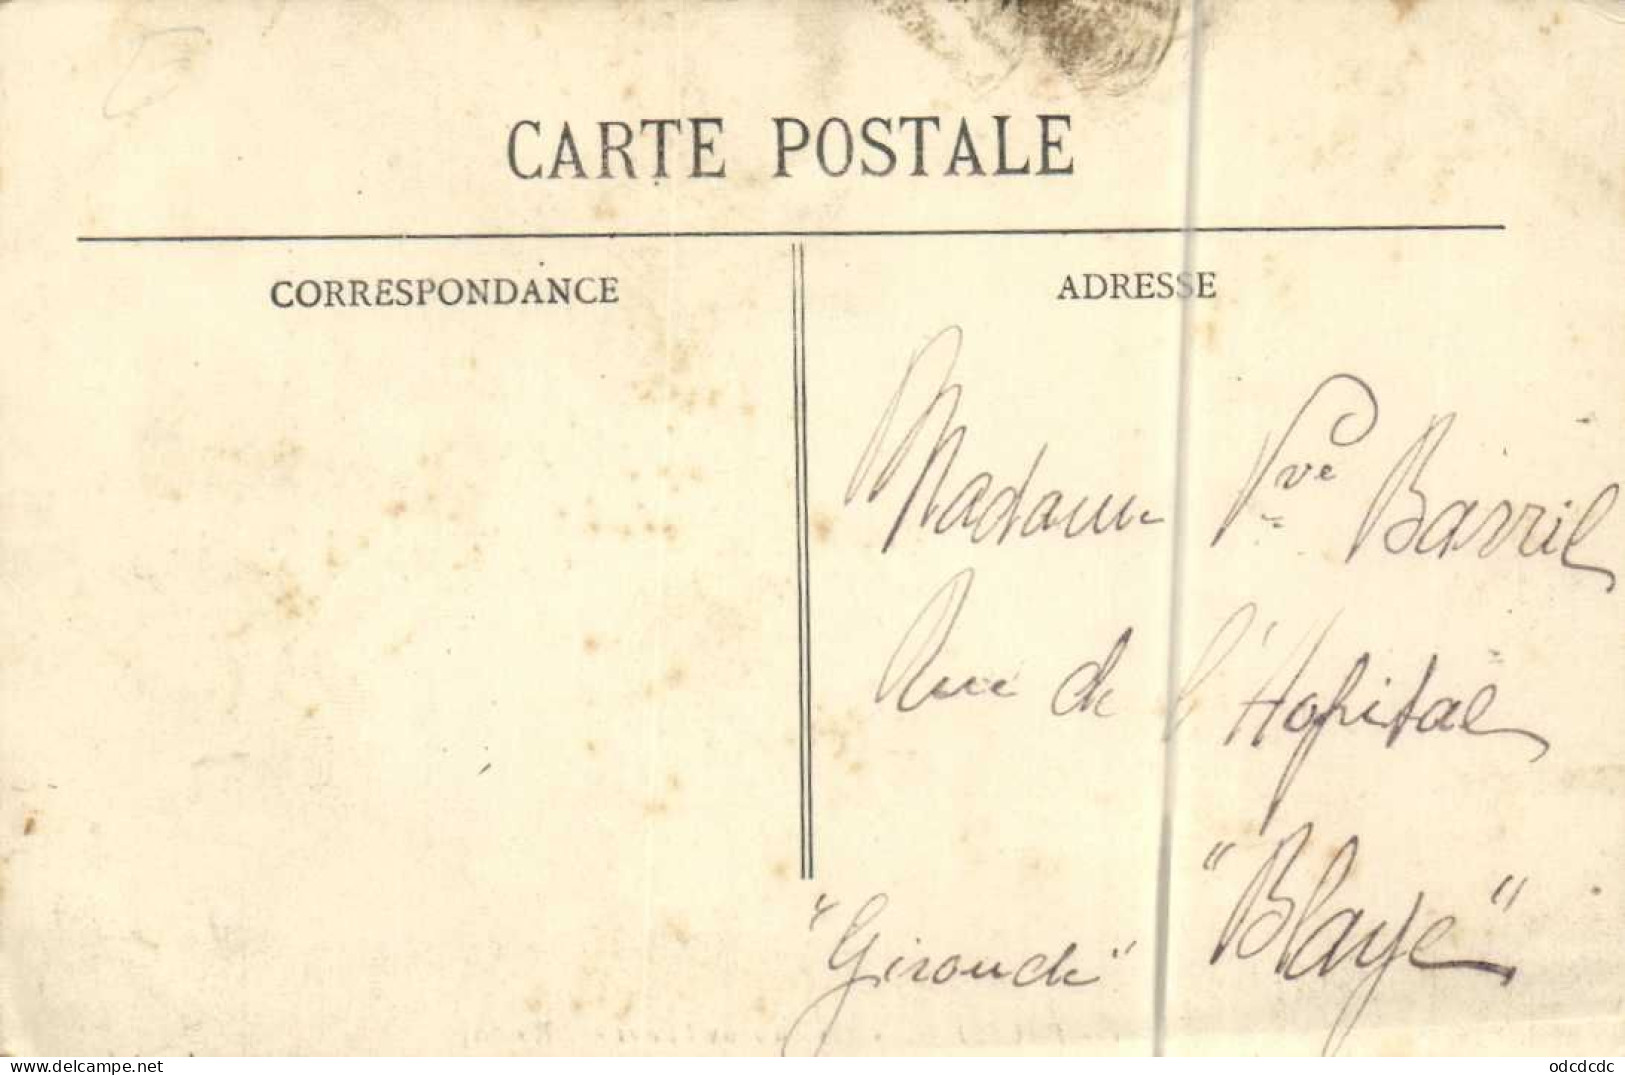 CARTE POSTALE
CORRESPONDANCE
ADRESSE
Madame Vve Barril
Rue de l'Hopital
"Blaye"
"Gironde"
delcampe.net
odcdcdc